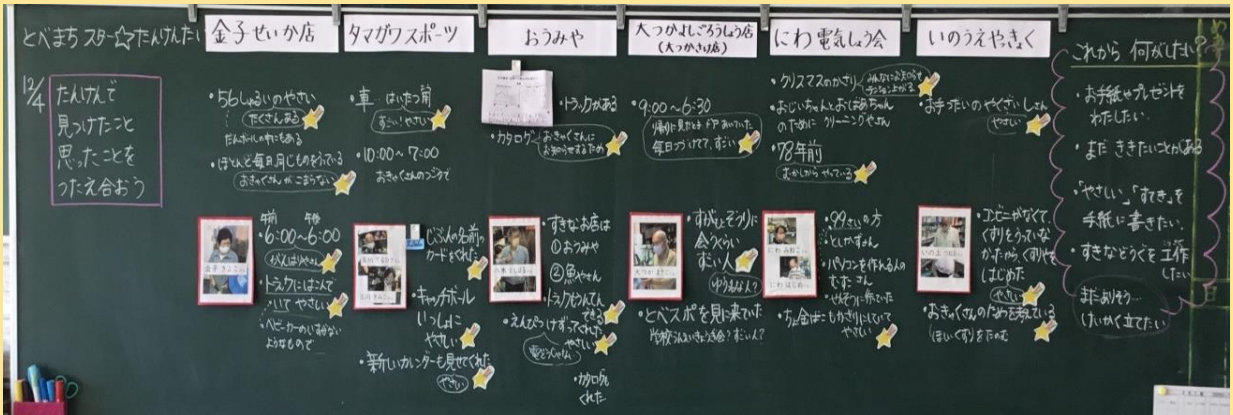 とべまちスター☆たんけんたい
12/4
たんけんで
見つけたこと
思ったことを
つたえ合おう
金子せいか店
・56しゅるいのやさい
たくさんある
だんボールの中にもある
・ほとんど毎日同じものをうっている
おきゃくさんがこまらない
午前 午後
・6:00〜6:00
がんばりやさん
・トラックにはこんで
いて やさしい
・ベビーカーのいすがない
ようなもので
タマガワスポーツ
・車 はいたつ前
すごい!やさしい
・10:00〜7:00
おきゃくさんのつごうで
・じぶんの名前の
カードをくれた
・キャッチボール
いっしょに
やさしい
・新しいカレンダーも見せてくれた
やさしい
おうみや
・トラックがある
・カタログ
おきゃくさんに
お知らせするため
・すきなお店は
①おうみや
②魚やさん
・トラックうんてん
できる
・えんぴつけずってくれた
やさしい
・カタログも
くれた
大つかよしごろうしょう店
(大つかさけ店)
・9:00〜6:30
帰りに見たときドアあいていた
毎日つづけてて、すごい
・すがもとそうりに
会うくらい
すごい人
ゆうめいな人?
・とべスポを見に来ていた
学校うんえいきょうぎ会?すごい人?
にわ電気しょう会
・クリスマスのかざり
みんなにお知らせ
テンション上がる
・おじいちゃんとおばあちゃん
のために クリーニングやさん
・78年前
むかしからやっている
・99さいの方
としかずさん
・パソコンを作れる人の
むすこさん
・ちょ金ばこもかざりにしていて
やさしい
いのうえやっきょく
・お手つだいのやくざいしさん
やさしい
・コンビニがなくて、
くすりをうっていな
かったから、くすりやを
はじめた
やさしい
・おきゃくさんのためを考えている
ほしいくすりをたのむ
これから 何がしたい?
・お手紙やプレゼントを
わたしたい。
・まだ ききたいことがある
・「やさしい」、「すてき」を
手紙に書きたい。
・すきなどうぐを工作
したい
まだありそう…
けいかく立てたい